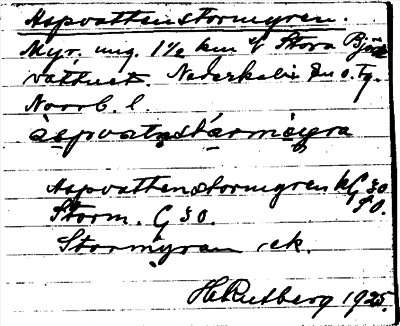 Aspvattenstormyren.
Myr, ung. 1½ km V Stora Björk
vattnet. Nederkalix sn o. tg.
Norrb. l
àspvatnstármöyra
Aspvattenstormyren kG 30
SO.
Storm. G 30.
Stormyran ek.
H. Rutberg 1925.